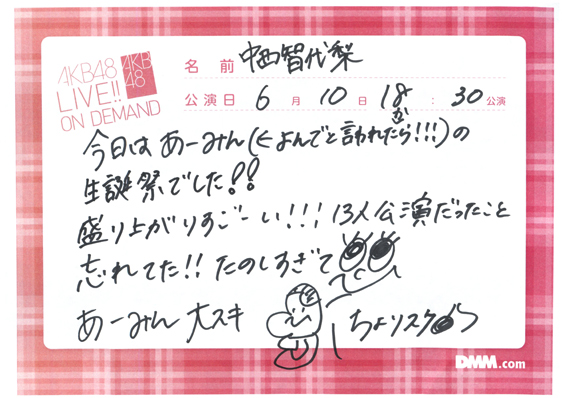 AKB48
LIVE!!
ON DEMAND
AKB
48
名前 中西智代梨
公演日 6月10日 18:30公演
今日は あーみん(←よんでと言われたから!!!)の
生誕祭でした!!
盛り上がりすごーい!!! 13人公演だったこと
忘れてた!! たのしすぎて
あーみん 大スキ
ちょりスケ
DMM.com